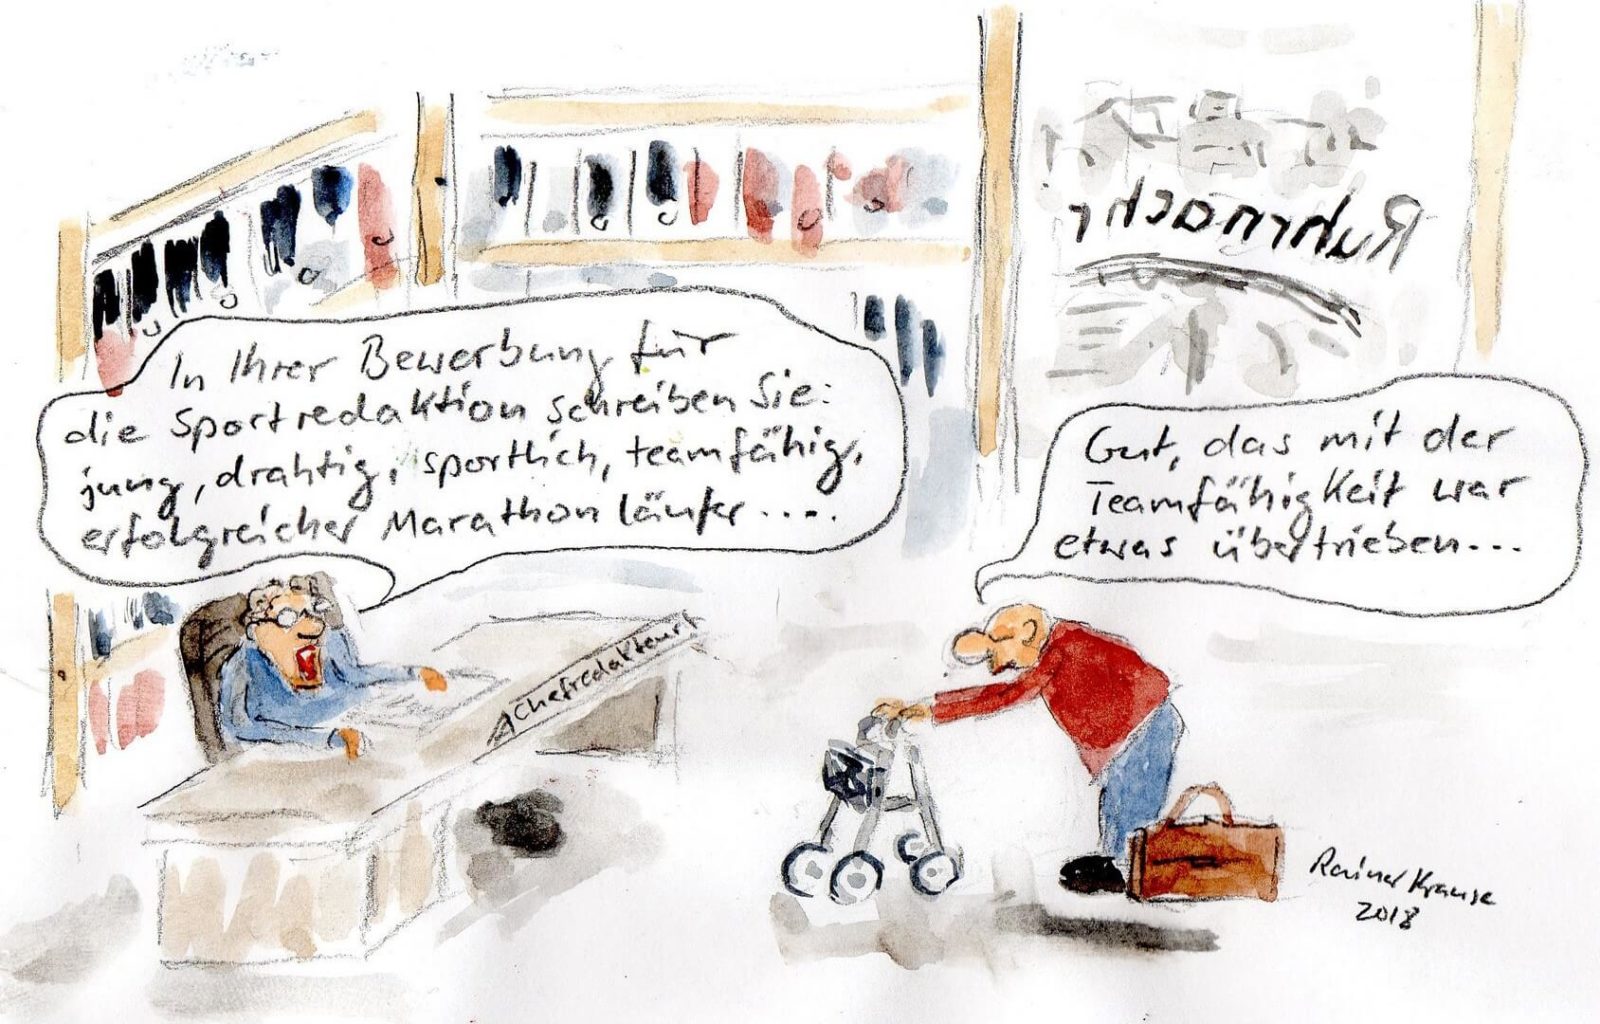 Ruhrnachr
In Ihrer Bewerbung für
die Sportredaktion schreiben Sie:
jung, drahtig, sportlich, teamfähig,
erfolgreicher Marathonläufer.....
Gut, das mit der
Teamfähigkeit war
etwas übertrieben...
Chefredakteur
Rainer Krause
2018